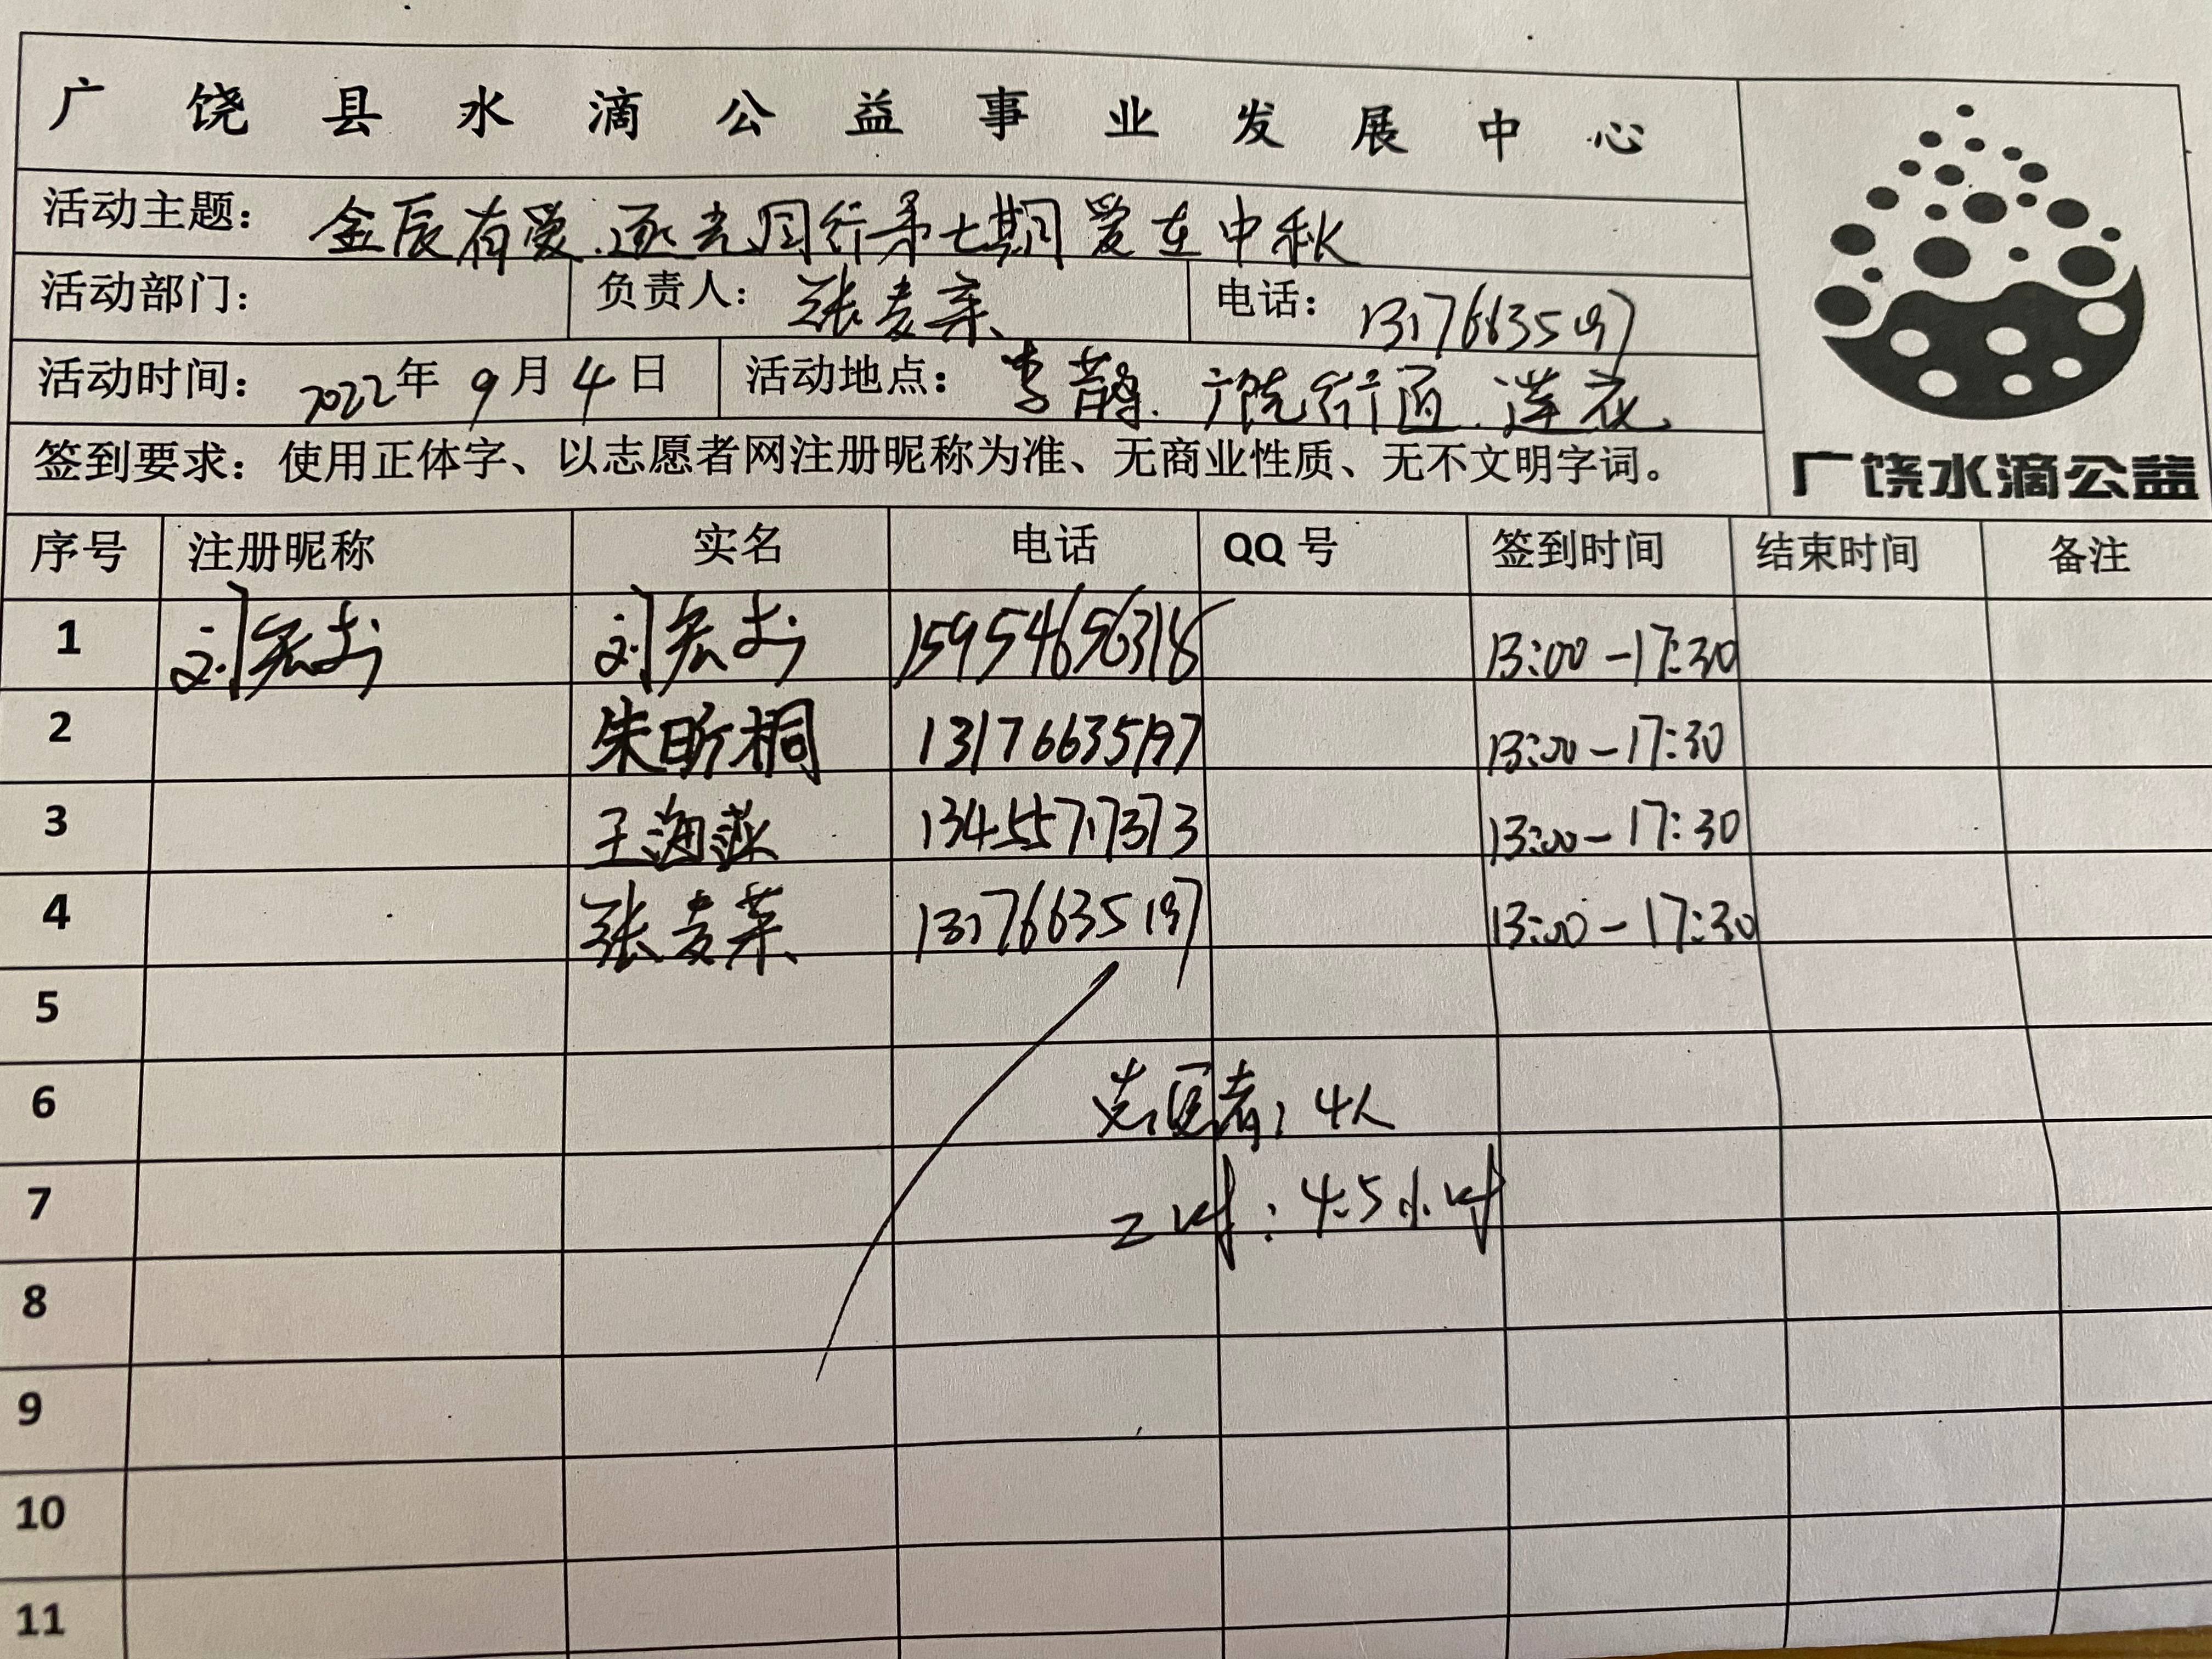 广饶县水滴公益事业发展中心
活动主题: 金辰有爱.逐光同行第七期 爱在中秋
活动部门: 负责人: 张麦 电话: 13176635197
活动时间: 2022年9月4日 活动地点: 李鹊.广饶街道.莲花
签到要求: 使用正体字、以志愿者网注册昵称为准、无商业性质、无不文明字词。
广饶水滴公益
序号 注册昵称 实名 电话 QQ号 签到时间 结束时间 备注
1 刘宏 刘宏 15954656318 13:00-17:30
2 朱昕桐 13176635197 13:00-17:30
3 王海燕 13455717373 13:00-17:30
4 张麦菜 13176635197 13:00-17:30
5
6 志愿者: 4人
7 工时: 4.5小时
8
9
10
11